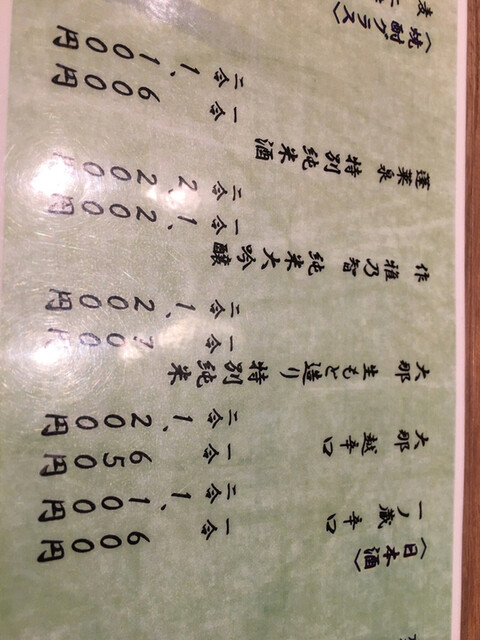 〈日本酒〉
一ノ蔵 辛口
一合 600円
二合 1,100円
大那 超辛口
一合 650円
二合 1,200円
大那 生もと造り 特別純米
一合 700円
二合 1,200円
作 雅乃智 純米大吟醸
一合 1,200円
二合 2,200円
蓬莱泉 特別純米酒
一合 600円
二合 1,100円
〈焼酎グラス〉
麦